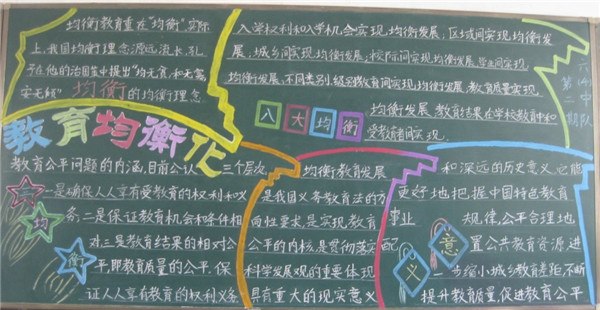 均衡教育重在“均衡”实际
上，我国均衡理念源远流长，孔
子在他的治国里中提出“均无贫，和无寡
安无倾”均衡的均衡理念
入学权利和入学机会实现均衡发展，区域间实现均衡发
展，城乡间实现均衡发展，校际间实现均衡发展，学生间实现
均衡发展，不同类别、级别教育间实现均衡发展，教育质量实现
均衡发展，教育结果在学校教育中和
受教育者间实现
六(4)中队
第二期
八大均衡
教育均衡化
教育公平问题的内涵，目前公认三个层次
一是确保人人享有受教育的权利和义
务；二是保证教育机会和条件相
对；三是教育结果的相对公
平，即教育质量的公平，保
证人人享有教育的权利义务
三均衡
均衡教育发展
是我国义务教育法的方
向性要求，是实现教育事业
公平的内核，是贯彻落实
科学发展观的重要体现
具有重大的现实意义
和深远的历史意义，它能
更好地把握中国特色教育
规律，公平合理地
配置公共教育资源，进
一步缩小城乡教育差距，不断
提升教育质量，促进教育公平
意义